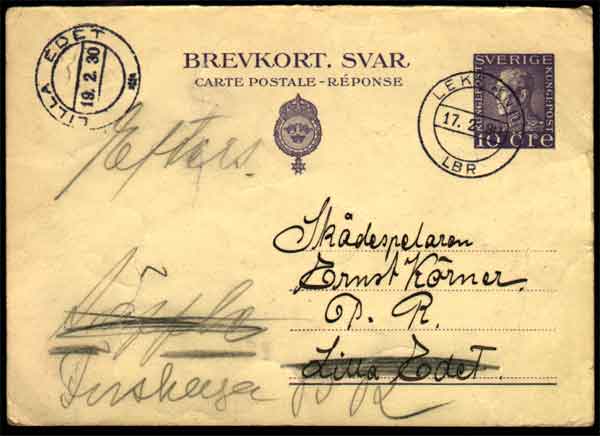 LILLA EDET
19. 2. 30
BREVKORT. SVAR
CARTE POSTALE - RÉPONSE
SVERIGE
10 ÖRE
17. 2.
LBR
Efters.
Skådespelaren
Ernst Körner.
P. R.
Lilla Edet.